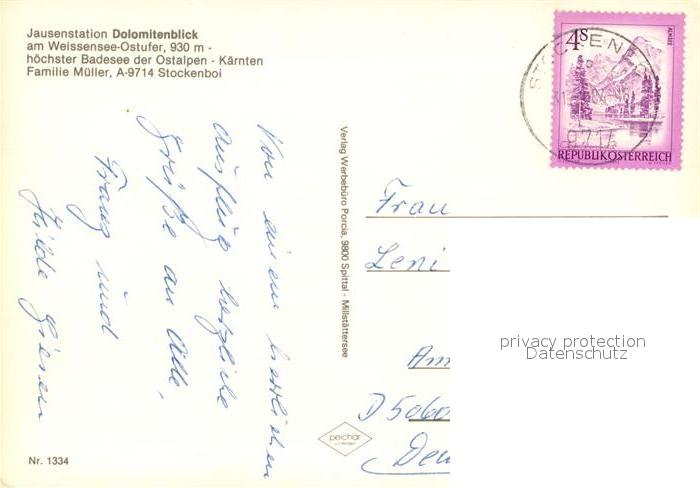 Jausenstation Dolomitenblick
am Weissensee-Ostufer, 930 m -
höchster Badesee der Ostalpen - Kärnten
Familie Müller, A-9714 Stockenboi
Von einem herrlichen
Ausflug herzliche
Grüße an Alle,
Franz und
Hilde Giesen
Nr. 1334
Verlag Werbebüro Porcia, 9800 Spittal - Millstättersee
peichär
4S
ALMSEE
REPUBLIK ÖSTERREICH
STOCKENBOI
9714
Frau
Leni
Am
D 5060
Deu
privacy protection
Datenschutz